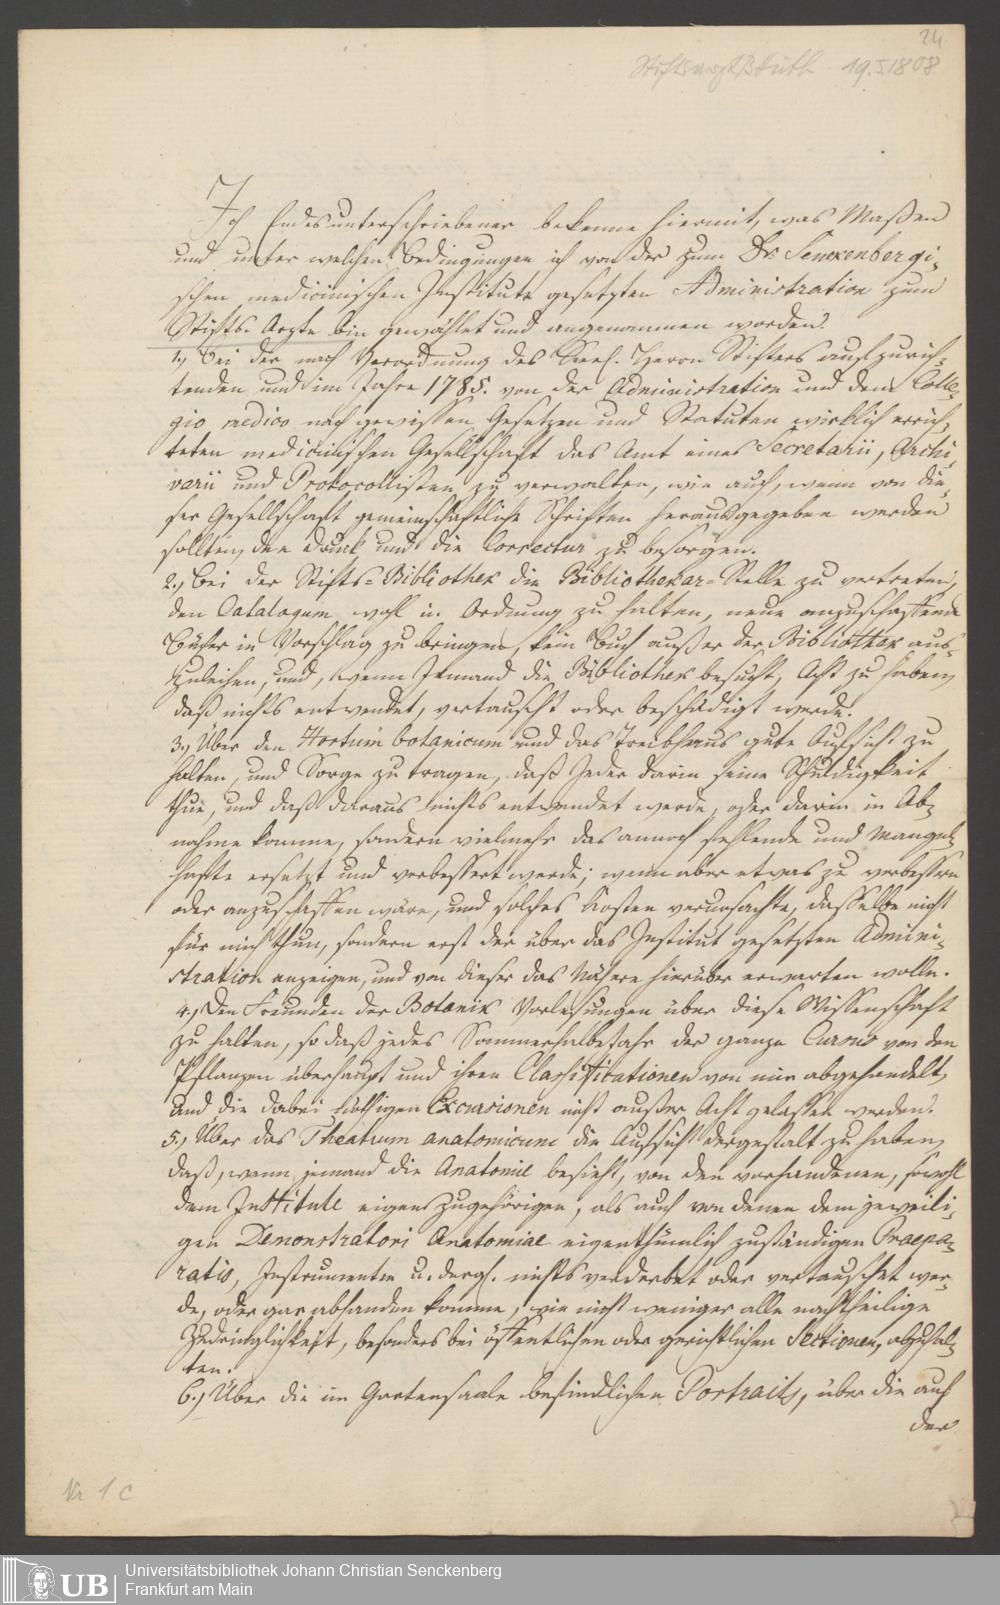 24
19.5.1808
Ich Endesunterschriebener bekenne hiermit, was Maßen
und unter welchen Bedingungen ich von der zum Dr. Senckenbergi-
schen medicinischen Institute gesetzten Administration zum
Stifts-Arzte bin gewählet und angenommen worden.
1., Bei der nach Verordnung des Herrn Stifters aufzurich-
tenden und im Jahre 1785. von der Administration und dem Colle-
gio medico nach gewissen Gesetzen und Statuten wirklich errich-
teten medicinischen Gesellschaft das Amt eines Secretarii, Archi-
varii und Protocollisten zu verwalten, wie auch, wenn von die-
ser Gesellschaft gemeinschaftliche Schriften herausgegeben werden
sollten, den Druck und die Correctur zu besorgen.
2., Bei der Stifts-Bibliothek die Bibliothekar-Stelle zu vertreten,
den Catalogum wohl in Ordnung zu halten, neue anzuschaffende
Bücher in Vorschlag zu bringen, kein Buch außer der Bibliothek aus-
zuleihen, und, wenn Jemand die Bibliothek besucht, Acht zu haben,
daß nichts entwendet, vertauscht oder beschädigt werde.
3., Über den Hortum botanicum und das Treibhaus gute Aufsicht zu
halten, und Sorge zu tragen, daß Jeder darin seine Schuldigkeit
thue, und daß daraus nichts entwendet werde, oder darin in Ab-
nahme komme, sondern vielmehr das annoch fehlende und Mangel-
hafte ersetzt und verbessert werde; wenn aber etwas zu verbessern
oder anzuschaffen wäre, und solches Kosten verursachte, dasselbe nicht
für mich thun, sondern erst der über das Institut gesetzten Admini-
stration anzeigen, und von dieser das Nähere hierüber erwarten wolle.
4., Den Freunden der Botanik Vorlesungen über diese Wissenschaft
zu halten, so daß jedes Sommerhalbejahr der ganze Cursus von den
Pflanzen überhaupt und ihren Classificationen von mir abgehandelt,
und die dabei nöthigen Excursionen nicht außer Acht gelassen werden.
5., Über das Theatrum anatomicum die Aufsicht dergestalt zu haben,
daß, wenn jemand die Anatomie besieht, von den vorhandenen, sowohl
dem Institute eigen zugehörigen, als auch von denen dem jeweili-
gen Demonstratori Anatomiae eigenthümlich zuständigen Praepa-
ratis, Instrumenten u. dergl. nichts verderbet oder vertauschet wer-
de, oder gar abhanden komme, wie nicht weniger alle nachtheilige
Zudringlichkeit, besonders bei öffentlichen oder gerichtlichen Sectionen, abzuhal-
ten.
6., Über die im Gartensaale befindlichen Portraits, über die auf
der
Nr 1 c
UB Universitätsbibliothek Johann Christian Senckenberg
Frankfurt am Main